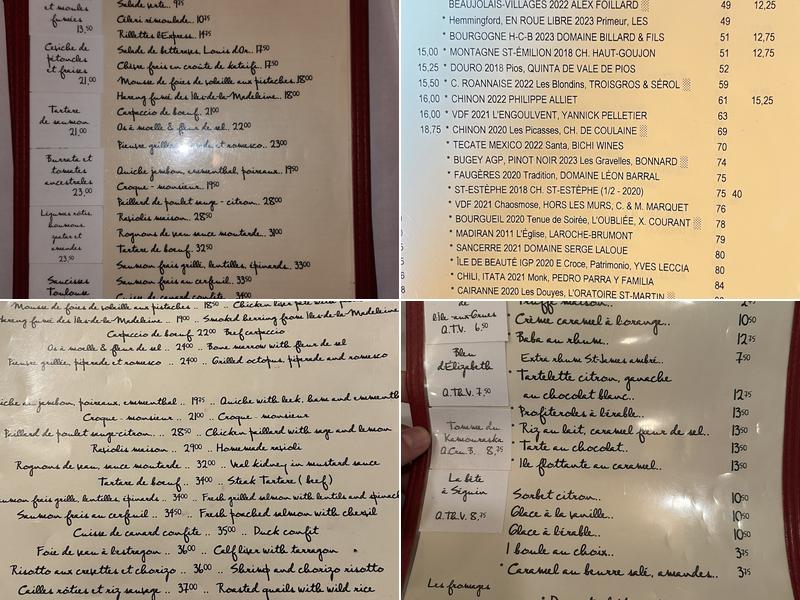 et moules
fumées
13,50
Ceviche de
pétoncles
et fraises
21,00
Tartare
de saumon
21,00
Burrata et
tomates
ancestrales
23,00
Légumes rôtis,
houmous
amandes
23,50
Saucisses
Toulouse
Salade verte.. 9⁷⁵
Céleri rémoulade.. 10⁷⁵
Rillettes d'Express.. 14⁷⁵
Salade de betteraves, Louis d'Or.. 17⁵⁰
Chèvre frais en croûte de kataifi.. 17⁵⁰
Mousse de foies de volaille aux pistaches.. 18⁰⁰
Hareng fumé des Iles-de-la-Madeleine.. 18⁰⁰
Carpaccio de boeuf.. 21⁰⁰
Os à moelle & fleur de sel.. 22⁰⁰
Pieuvre grillée, piperade et romesco.. 23⁰⁰
Quiche jambon, emmenthal, poireaux.. 19⁵⁰
Croque-monsieur.. 19⁵⁰
Paillard de poulet sauge-citron.. 28⁰⁰
Raviolis maison.. 28⁵⁰
Rognons de veau sauce moutarde.. 31⁰⁰
Tartare de boeuf.. 32⁵⁰
Saumon frais grillé, lentilles, épinards.. 33⁰⁰
Saumon frais au cerfeuil.. 33⁵⁰
Cuisse de canard confite.. 34⁰⁰
BEAUJOLAIS-VILLAGES 2022 ALEX FOILLARD 49 12,25
* Hemmingford, EN ROUE LIBRE 2023 Primeur, LES 49
* BOURGOGNE H-C-B 2023 DOMAINE BILLARD & FILS 51 12,75
15,00 * MONTAGNE ST-ÉMILION 2018 CH. HAUT-GOUJON 51 12,75
15,25 * DOURO 2018 Pios, QUINTA DE VALE DE PIOS 52
15,50 * C. ROANNAISE 2022 Les Blondins, TROISGROS & SÉROL 59
16,00 * CHINON 2022 PHILIPPE ALLIET 61 15,25
16,00 * VDF 2021 L'ENGOULVENT, YANNICK PELLETIER 63
18,75 * CHINON 2020 Les Picasses, CH. DE COULAINE 69
* TECATE MEXICO 2022 Santa, BICHI WINES 70
* BUGEY AGP, PINOT NOIR 2023 Les Gravelles, BONNARD 74
* FAUGÈRES 2020 Tradition, DOMAINE LÉON BARRAL 75
* ST-ESTÈPHE 2018 CH. ST-ESTÈPHE (1/2 - 2020) 75 40
* VDF 2021 Chaosmose, HORS LES MURS, C. & M. MARQUET 76
* BOURGUEIL 2020 Tenue de Soirée, L'OUBLIÉE, X. COURANT 78
* MADIRAN 2011 L'Église, LAROCHE-BRUMONT 79
* SANCERRE 2021 DOMAINE SERGE LALOUE 80
* ÎLE DE BEAUTÉ IGP 2020 E Croce, Patrimonio, YVES LECCIA 80
* CHILI, ITATA 2021 Monk, PEDRO PARRA Y FAMILIA 84
* CAIRANNE 2020 Les Douyes, L'ORATOIRE ST-MARTIN
Mousse de foies de volaille aux pistaches .. 18⁵⁰ .. Chicken liver pate with
Hareng fumé des Iles-de-la-Madeleine .. 19⁰⁰ .. Smoked herring from Iles-de-la-Madeleine
Carpaccio de boeuf 22⁰⁰ Beef carpaccio
Os à moelle & fleur de sel .. 24⁰⁰ .. Bone marrow with fleur de sel
Pieuvre grillée, piperade et romesco .. 24⁰⁰ .. Grilled octopus, piperade and romesco
jambon, poireaux, emmenthal .. 19⁷⁵ .. Quiche with leek, ham and emmenth
Croque-monsieur .. 21⁰⁰ .. Croque-monsieur
Paillard de poulet sauge-citron.. .. 28⁵⁰ .. Chicken paillard with sage and lemon
Raviolis maison .. 29⁰⁰ .. Homemade ravioli
Rognons de veau, sauce moutarde .. 32⁰⁰ .. Veal kidney in mustard sauce
Tartare de boeuf .. 34⁰⁰ .. Steak Tartare (beef)
saumon frais grillé, lentilles, épinards .. 34⁰⁰ .. Fresh grilled salmon with lentils and spinach
Saumon frais au cerfeuil .. 34⁵⁰ .. Fresh poached salmon with chervil
Cuisse de canard confite .. 35⁰⁰ .. Duck confit
Foie de veau à l'estragon .. 36⁰⁰ .. Calf liver with tarragon
Risotto aux crevettes et chorizo .. 36⁰⁰ .. Shrimp and chorizo risotto
Cailles rôties et riz sauvage .. 37⁰⁰ .. Roasted quails with wild rice
de
l'Ile-aux-Grues
Q.T.V. 6,50
Bleu
d'Elizabeth
Q.T&V. 7,50
Tomme du
Kamouraska
Q.Cru.B. 8,75
La bête
à Séguin
Q.T&V. 8,75
Truffe maison..
* Crème caramel à l'orange.. 10⁵⁰
* Baba au rhum.. 12⁷⁵
Extra rhum St-James ambré.. 7⁵⁰
* Tartelette citron, ganache
au chocolat blanc.. 12⁷⁵
* Profiteroles à l'érable.. 13⁵⁰
* Riz au lait, caramel fleur de sel.. 13⁵⁰
* Tarte au chocolat.. 13⁵⁰
* Ile flottante au caramel.. 13⁵⁰
Sorbet citron.. 10⁵⁰
Glace à la vanille.. 10⁵⁰
Glace à l'érable.. 10⁵⁰
1 boule au choix.. 3⁷⁵
* Caramel au beurre salé, amandes.. 3⁷⁵
Les fromages